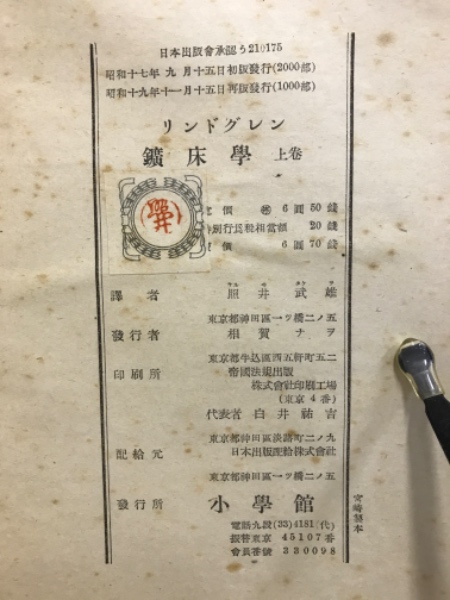 日本出版會承認う210175
昭和十七年 九 月十五日初版發行(2000部)
昭和十九年十一月十五日再版發行(1000部)
リンドグレン
鑛床學 上卷
價 ㊞ 6圓50錢
別行爲税相當額 20錢
價 6圓70錢
譯者 照井武雄
東京都神田區一ツ橋二ノ五
發行者 相賀ナヲ
東京都牛込區西五軒町五二
印刷所 帝國法規出版
株式會社印刷工場
(東京4番)
代表者 白井祐吉
東京都神田區淡路町二ノ九
配給元 日本出版配給株式會社
東京都神田區一ツ橋二ノ五
發行所 小學館
電話九段(33)4181(代)
振替東京 45107番
會員番號 330098
宮崎製本